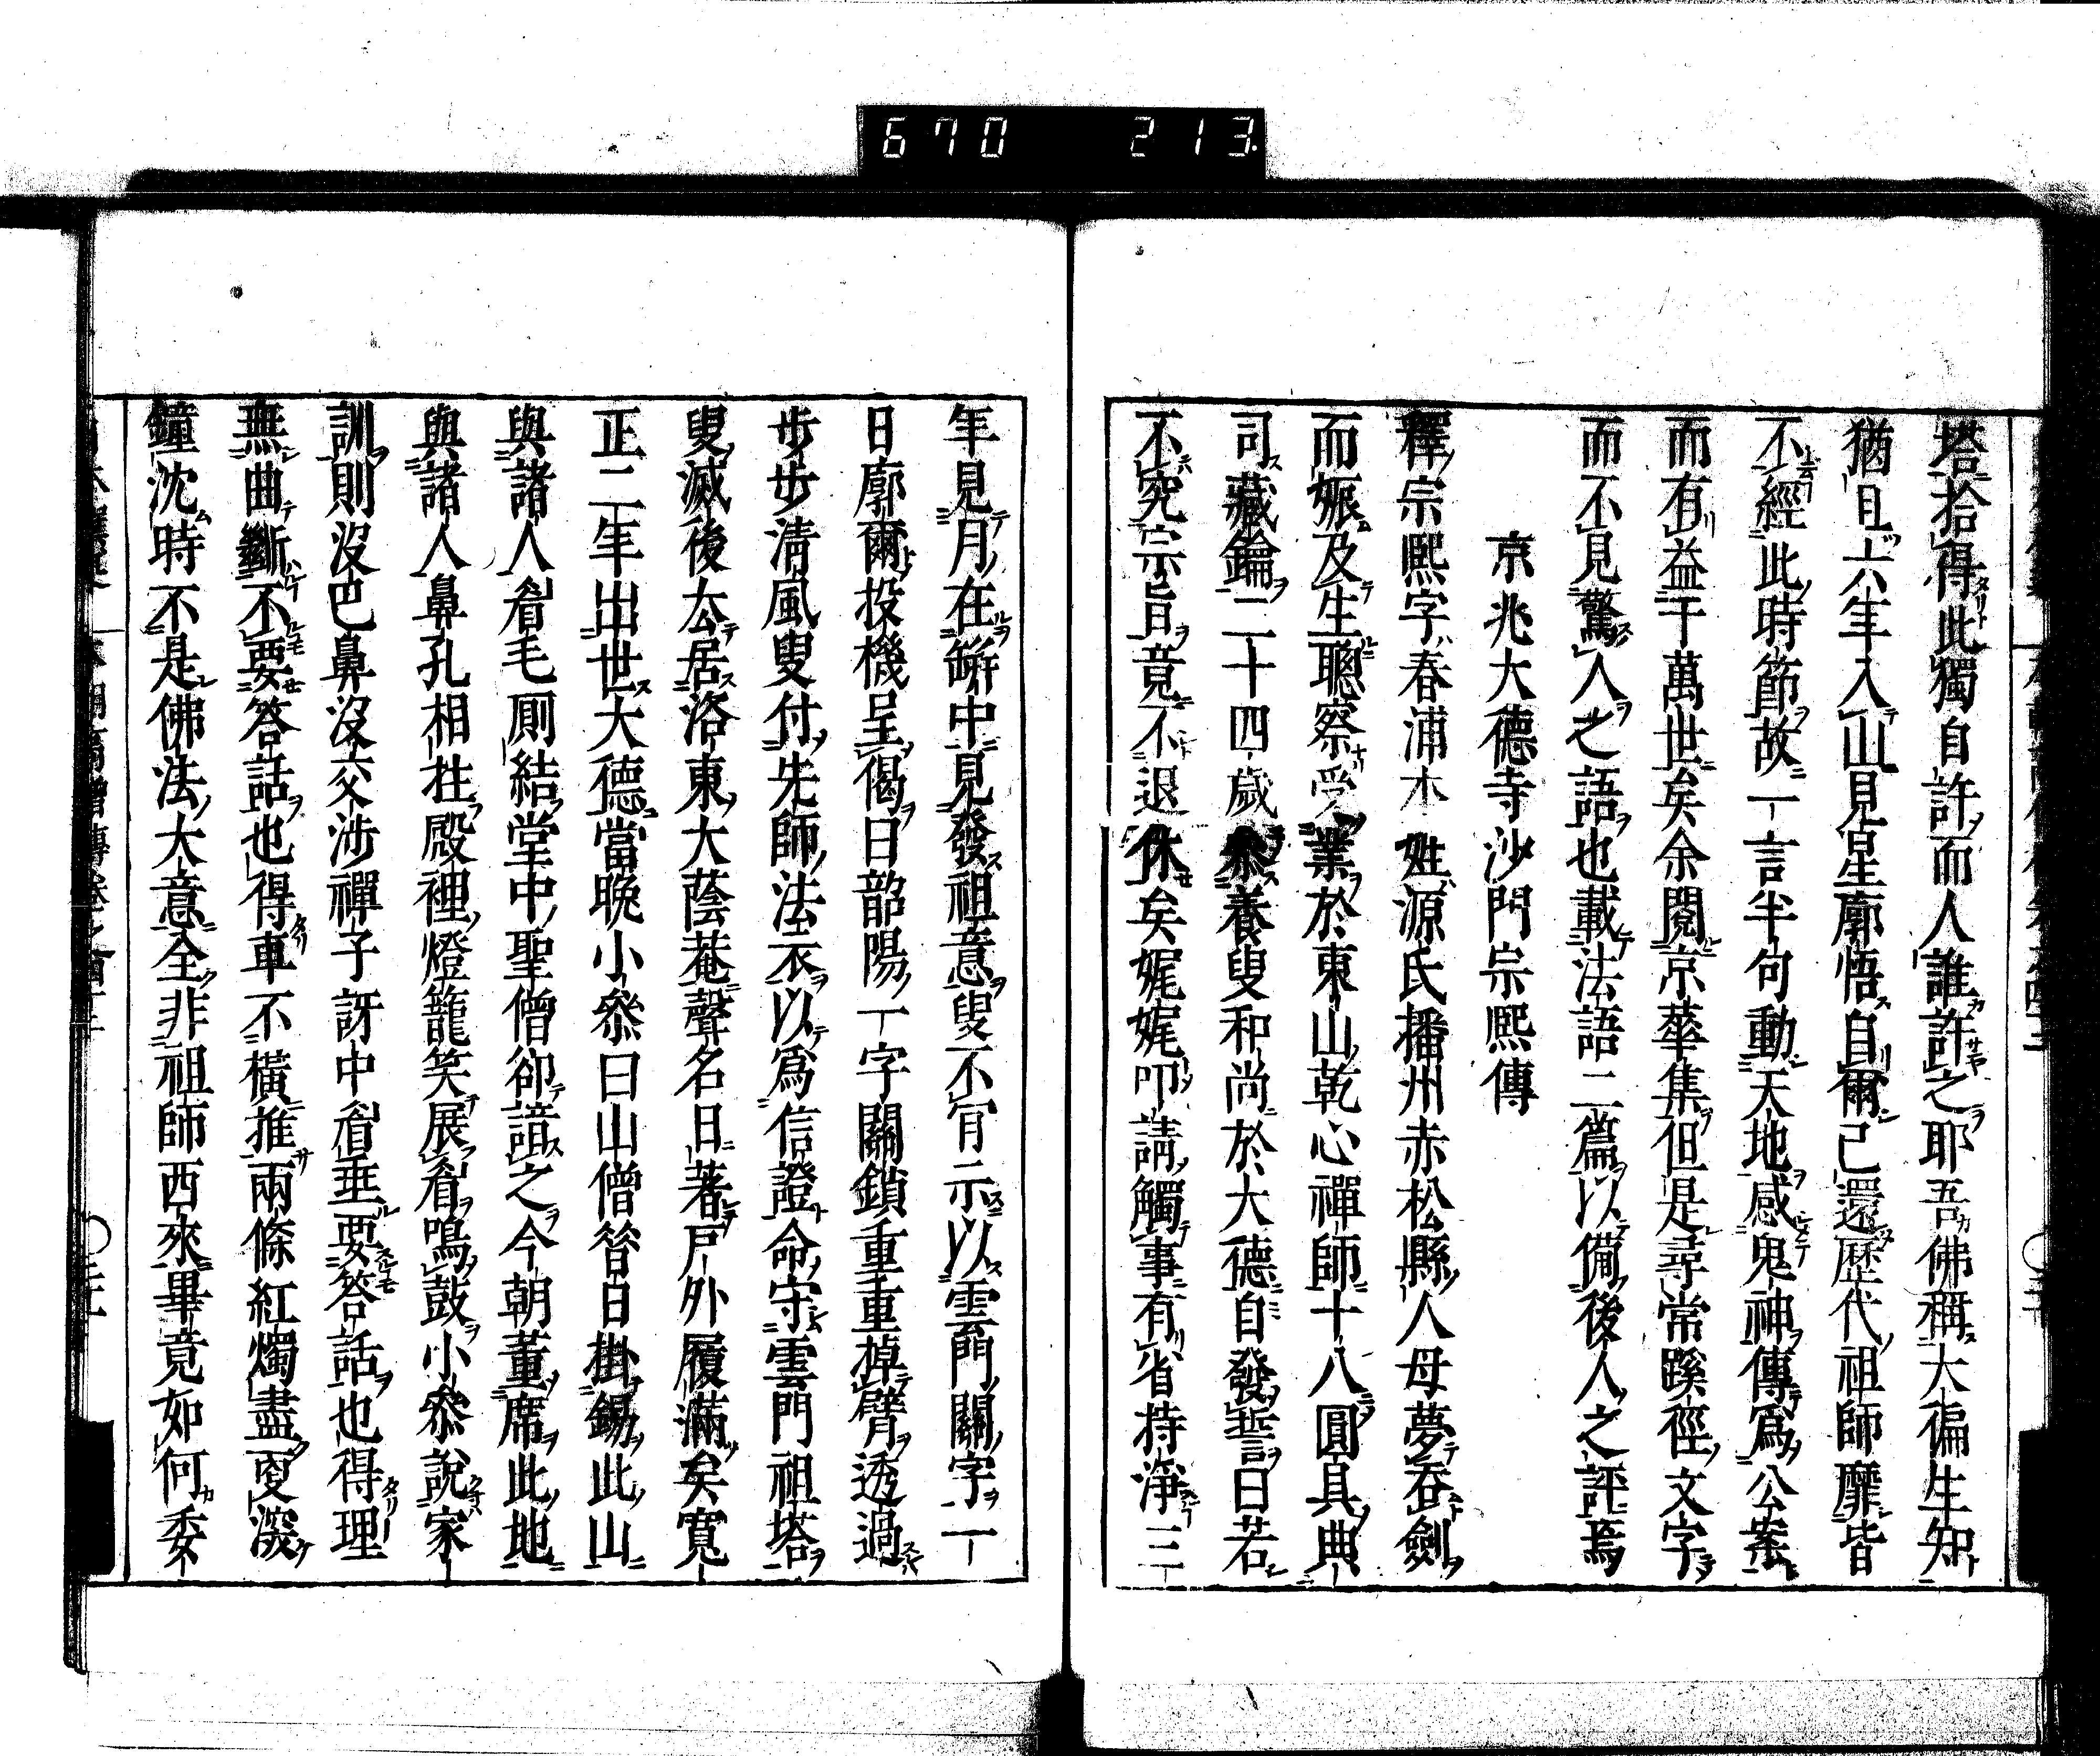 670 213
塔拾得此獨自許而人誰許之耶吾佛稱大徧生知
猶且六年入山見星廓悟自爾已還歷代祖師靡皆
不經此時節故一言半句動天地感鬼神傳爲公案
而有益于萬世矣余閱京華集但是尋常蹊徑文字
而不見驚人之語也載法語二篇以備後人之評焉
京兆大德寺沙門宗熈傳
釋宗熈字春浦木姓源氏播州赤松縣人母夢吞劍
而娠及生聰察受業於東山乾心禪師十八圓具典
司藏鑰二十四歲叅養叟和尚於大德自發誓曰若
不究宗旨竟不退休矣娓娓叩請觸事有省持淨三
年見月在缾中見發祖意叟不肎示以雲門關字一
日廓爾投機呈偈曰韶陽一字關鎖重重掉臂透過
步步淸風叟付先師法衣以爲信證命守雲門祖塔
叟滅後厺居洛東大蔭菴聲名日著戸外履滿矣寬
正二年出世大德當晚小叅曰山僧答日掛錫此山
與諸人眉毛厮結堂中聖僧卻諳之今朝董席此地
與諸人鼻孔相拄殿裡燈籠笑展眉鳴鼓小叅說家
訓則沒巴鼻沒交涉禪子訝中眉垂要答話也得理
無曲斷不要答話也得車不橫推兩條紅燭盡夜淡
鐘沈時不是佛法大意全非祖師西來畢竟如何委